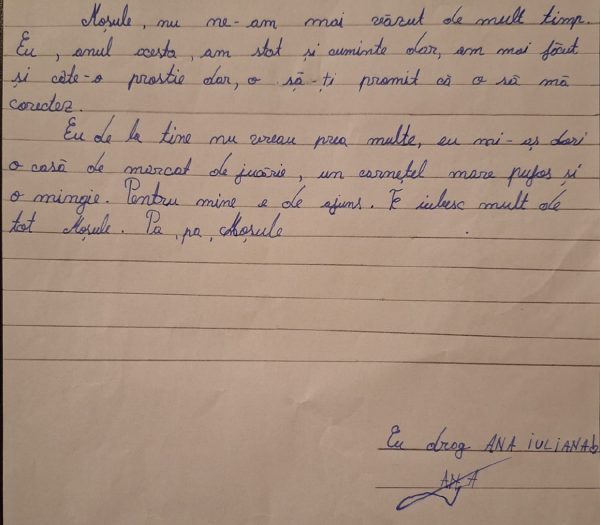 Moșule, nu ne-am mai văzut de mult timp.
Eu, anul acesta, am stat și cuminte dar, am mai făcut
și câte-o prostie dar, o să-ți promit că o să mă
corectez.
Eu de la tine nu vreau prea multe, eu mi-aș dori
o casă de marcat de jucărie, un carnețel mare pufos și
o mingie. Pentru mine e de ajuns. Te iubesc mult de
tot Moșule. Pa, pa, Moșule
Eu drag ANA IULIANA
ANA